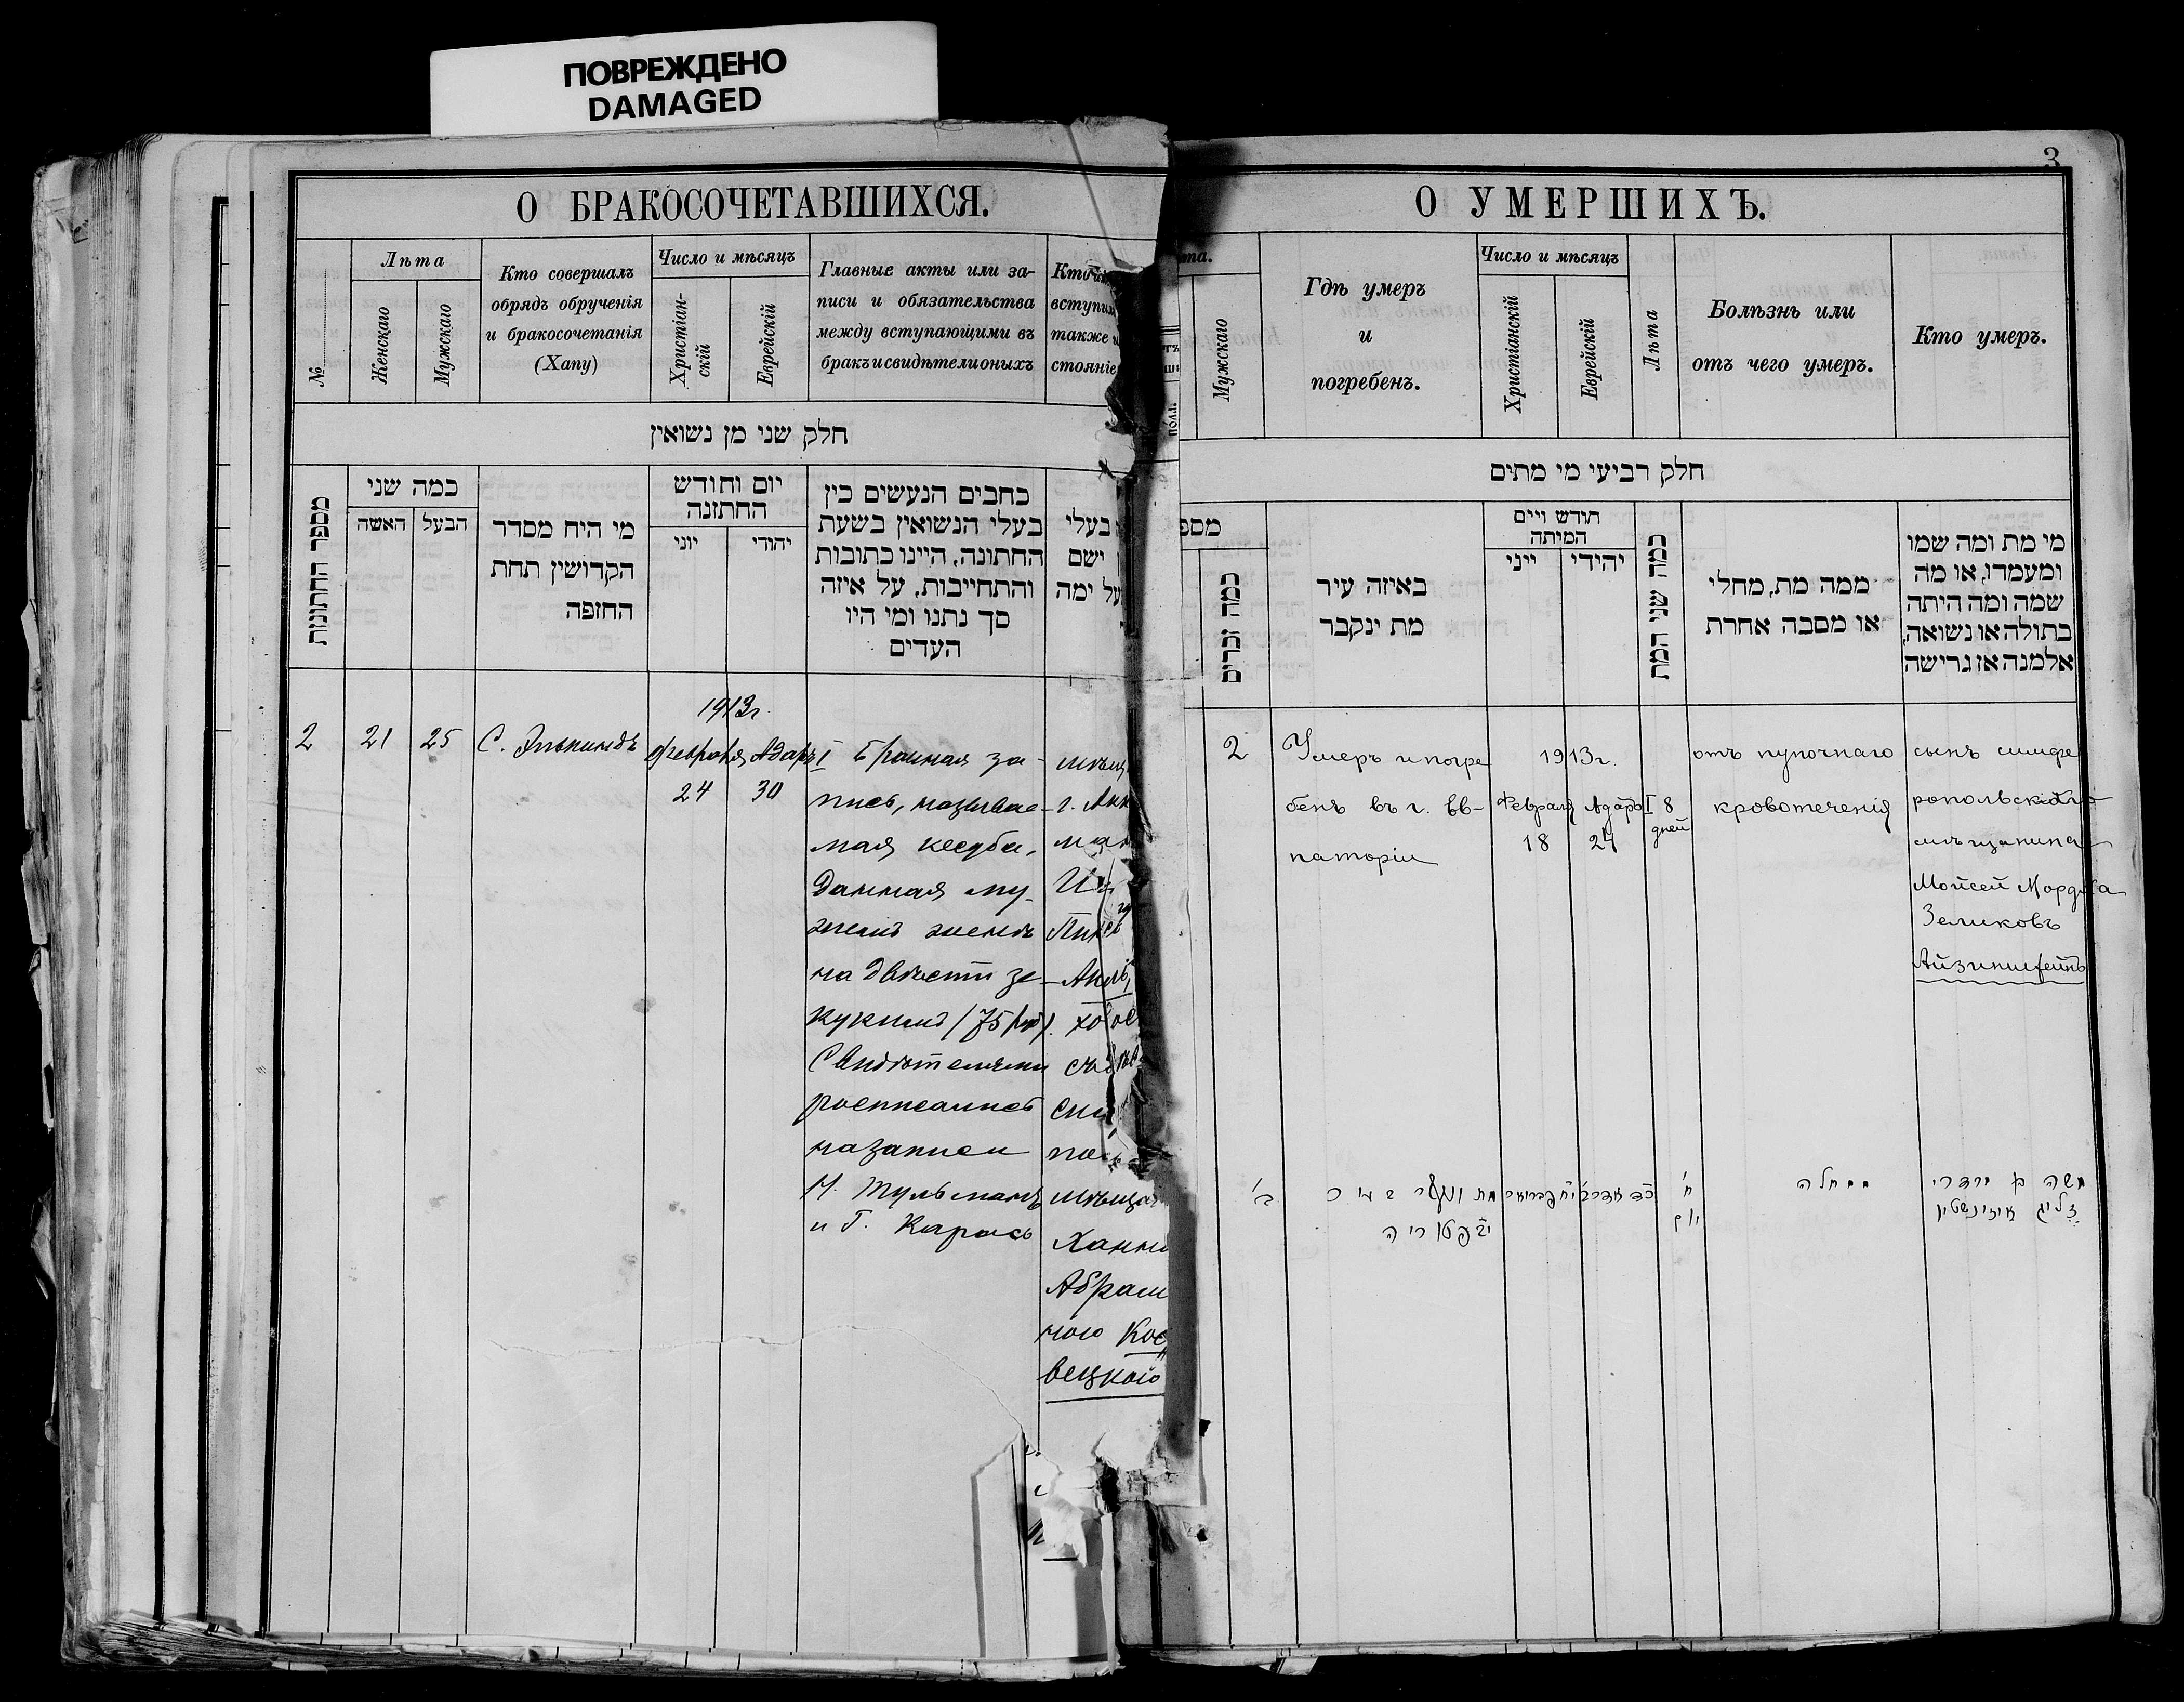 ПОВРЕЖДЕНО
DAMAGED
О БРАКОСОЧЕТАВШИХСЯ.
№
Лѣта
Женскаго
Мужскаго
Кто совершалъ
обрядъ обрученія
и бракосочетанія
(Хапу)
Число и мѣсяцъ
Христіан-
скій
Еврейскій
Главные акты или за-
писи и обязательства
между вступающими въ
бракъ и свидѣтели оныхъ
Кто
вступи
также и
стояніе
חלק שני מן נשואין
מספר החתונות
כמה שני
האשה
הבעל
מי היח מסדר
הקדושין תחת
החופה
יום וחודש
החתונה
יוני
יהודי
כתבים הנעשים בין
בעלי הנשואין בשעת
החתונה, היינו כתובות
והתחייבות, על איזה
סך נתנו ומי היו
העדים
בעלי
ישם
על ימה
2
21
25
С. Элькиндъ
1913г.
Февраля
24
Адаръ I
30
Брачная за-
пись, называе-
мая кесуба,
данная му-
жемъ женѣ
на двѣсти зе-
кукимъ (75 руб).
Свидѣтелями
росписались
на записи
И. Тульманъ
и Г. Карась
мѣщ
г. Акк
ман
Пин
хол
мѣщан
Ханн
Абрам
ного Кос
вецкой
3
О УМЕРШИХЪ.
та.
Мужскаго
Гдѣ умеръ
и
погребенъ.
Число и мѣсяцъ
Христіанскій
Еврейскій
Лѣта
Болѣзнь или
отъ чего умеръ.
Кто умеръ.
חלק רביעי מי מתים
מספ
כמה זכרים
באיזה עיר
מת ינקבר
חודש ויים
המיתה
ייני
יהידי
כמה שני המת
ממה מת, מחלי
או מסבה אחרת
מי מת ומה שמו
ומעמדו, או מה
שמה ומה היתה
בתולה או נשואה,
אלמנה אז גרישה
2
Умеръ и погре
бенъ въ г. Ев-
паторіи
1913г.
Февраля
18
Адаръ I
24
8
дней
отъ пупочнаго
кровотеченія
сынъ симфе
ропольскаго
мѣщанина
Мойсей Мордха
Зеликовъ
Айзинштейнъ
ב'
מת ונקבר פה
יבפטריה
ח'
ממחלה
משה בן מרדכי
זליג איזינשטין